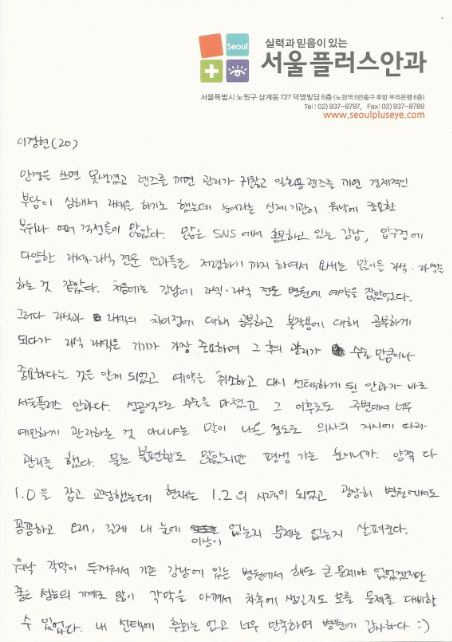 Seoul
실력과 믿음이 있는
서울플러스안과
서울특별시 노원구 상계동 727 덕영빌딩 6층 (노원역 5번출구 후방 우리은행 6층)
Tel : 02) 937-8787, Fax : 02) 937-8789
www.seoulpluseye.com
이정현(20)
안경은 쓰면 못생겼고 렌즈를 끼면 관리가 귀찮고 일회용 렌즈를 끼면 경제적인
부담이 심해서 라섹을 하기로 했는데 눈이라는 신체기관이 워낙에 중요한
부위라 여러 걱정들이 많았다. 많은 SNS에서 홍보하고 있는 강남, 압구정에
다양한 라식·라섹 전문 안과들은 저렴하기까지 하여서 요새는 많이들 라식·라섹을
하는 것 같았다. 처음에는 강남에 라식·라섹 전문 병원에 예약을 잡았었다.
그러다 라식과 라섹의 차이점에 대해 공부하고 부작용에 대해 공부하게
되다가 라식 라섹은 기기가 가장 중요하며 그 후의 관리가 수술만큼이나
중요하다는 것은 알게 되었고 예약을 취소하고 다시 선택하게 된 안과가 바로
서울플러스 안과다. 성공적으로 수술을 마쳤고 그 이후로도 주변에서 너무
예민하게 관리하는 것 아니냐는 말이 나올 정도로 의사의 지시에 따라
관리를 했다. 물론 불편함도 많았지만 평생 가는 눈이니까. 양쪽 다
1.0을 잡고 교정했는데 현재는 1.2의 시력이 되었고 굉장히 병원에서도
꼼꼼하고 오래, 길게 내 눈에 이상이 없는지 문제는 없는지 살펴준다.
워낙 각막이 두꺼워서 기존 강남에 있는 병원에서 해도 큰 문제야 없었겠지만
좋은 성능의 기계로 많이 각막을 아껴서 차후에 생길지도 모를 문제를 대비할
수 있었다. 내 선택에 후회는 없고 너무 만족하며 병원에 감사하다 :)